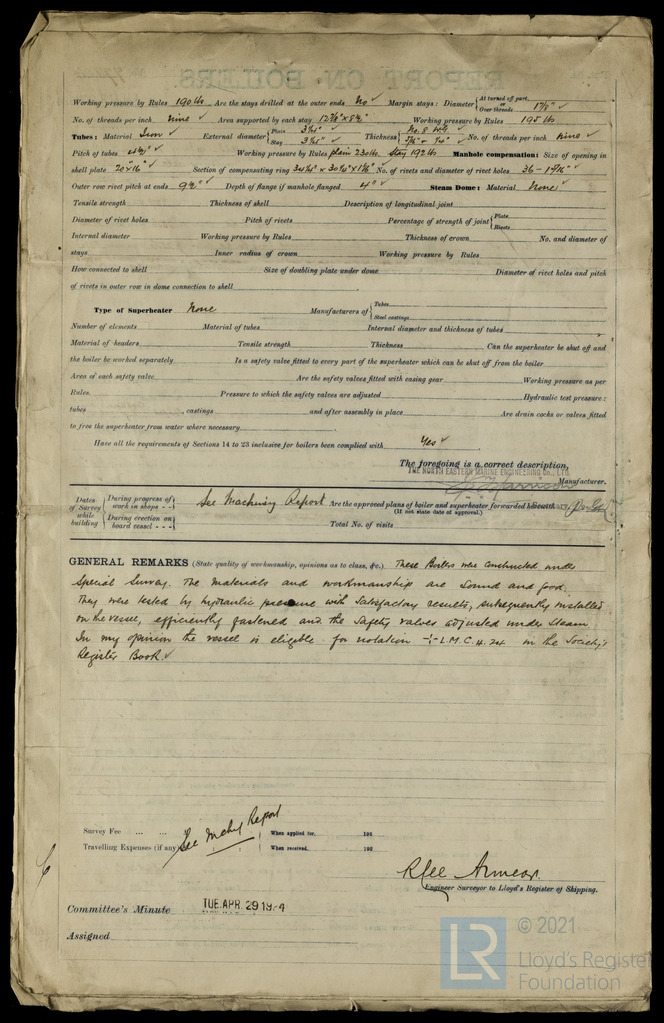 Working pressure by Rules 190 lbs Are the stays drilled at the outer ends No Margin stays: Diameter { At turned off part, or Over threads 1 7/8"
No. of threads per inch nine Area supported by each stay Working pressure by Rules 195 lbs
Tubes: Material Iron External diameter { Plain Stay Thickness { No. of threads per inch nine
Pitch of tubes Working pressure by Rules plain 230 lbs. Stay 192 lbs Manhole compensation: Size of opening in
shell plate 20" x 16" Section of compensating ring No. of rivets and diameter of rivet holes 36 -
Outer row rivet pitch at ends Depth of flange if manhole flanged 4" Steam Dome: Material None
Tensile strength Thickness of shell Description of longitudinal joint
Diameter of rivet holes Pitch of rivets Percentage of strength of joint { Plate Rivets
Internal diameter Working pressure by Rules Thickness of crown No. and diameter of
stays Inner radius of crown Working pressure by Rules
How connected to shell Size of doubling plate under dome Diameter of rivet holes and pitch
of rivets in outer row in dome connection to shell
Type of Superheater None Manufacturers of { Tubes Steel castings
Number of elements Material of tubes Internal diameter and thickness of tubes
Material of headers Tensile strength Thickness Can the superheater be shut off and
the boiler be worked separately Is a safety valve fitted to every part of the superheater which can be shut off from the boiler
Area of each safety valve Are the safety valves fitted with easing gear Working pressure as per
Rules Pressure to which the safety valves are adjusted Hydraulic test pressure:
tubes , castings and after assembly in place Are drain cocks or valves fitted
to free the superheater from water where necessary
Have all the requirements of Sections 14 to 23 inclusive for boilers been complied with Yes
The foregoing is a correct description,
THE NORTH EASTERN MARINE ENGINEERING Co., LTD.
Manufacturer.
Dates of Survey while building { During progress of work in shops - - During erection on board vessel - - - See Machinery Report Are the approved plans of boiler and superheater forwarded herewith
(If not state date of approval.)
Total No. of visits
GENERAL REMARKS (State quality of workmanship, opinions as to class, &c.) These Boilers were constructed under
Special Survey. The materials and workmanship are sound and good.
They were tested by hydraulic pressure with satisfactory results, subsequently installed
on the vessel, efficiently fastened and the Safety valves adjusted under steam.
In my opinion the vessel is eligible for notation + L.M.C. 4.24 in the Society's
Register Book.
Survey Fee ... ... See Mchy Report { When applied for, 192
Travelling Expenses (if any) When received, 192
Engineer Surveyor to Lloyd's Register of Shipping.
Committee's Minute TUE. APR. 29 1924
Assigned
LR © 2021
Lloyd's Register
Foundation